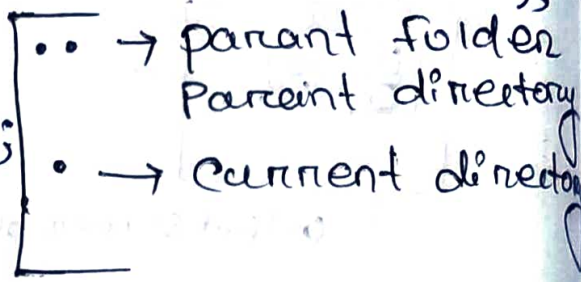 .. → parant folder
Parceint directory
. → Current directory